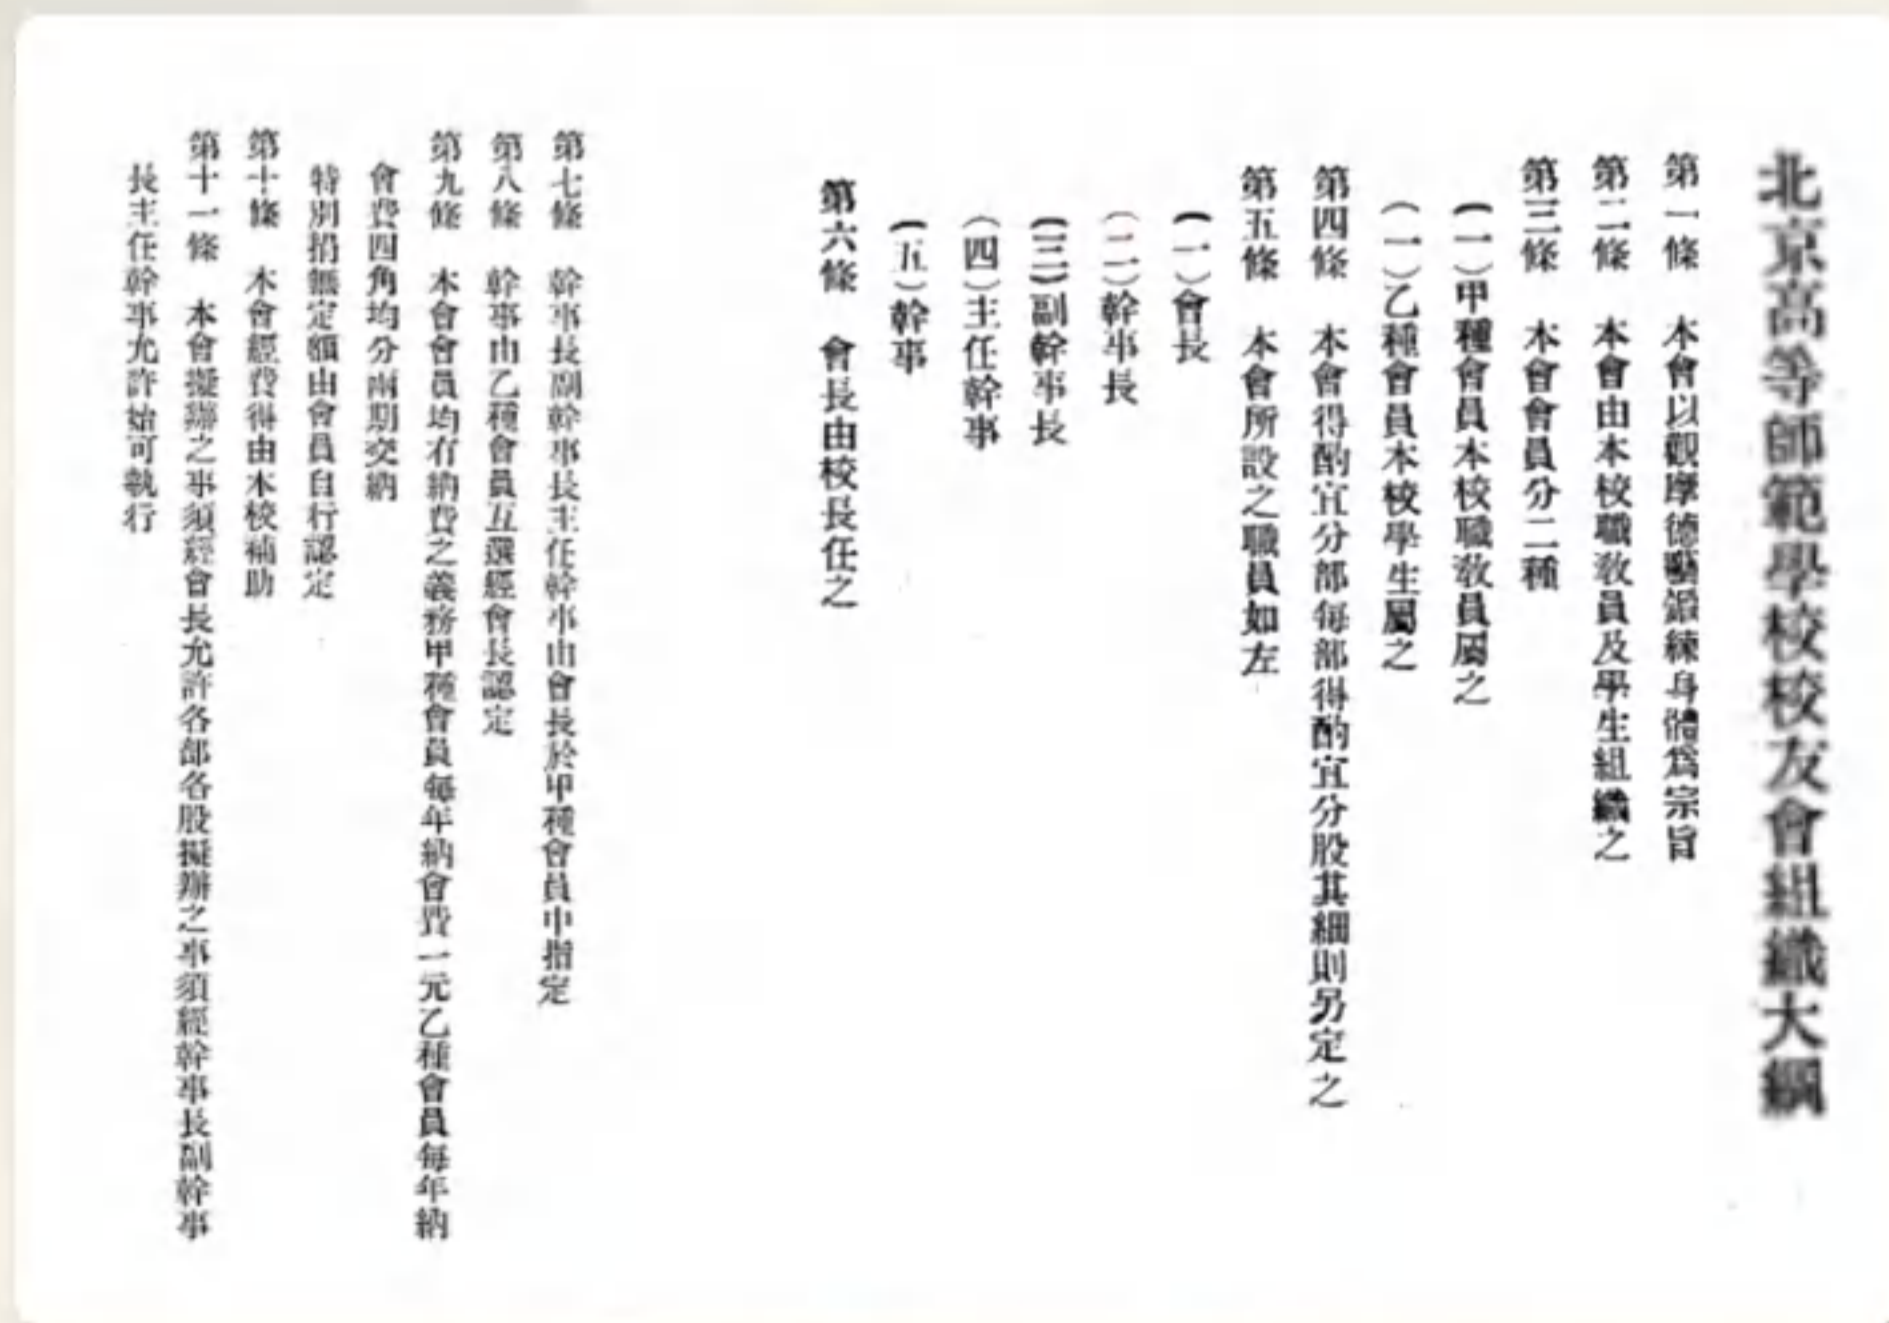 北京高等師範學校校友會組織大綱
第一條　本會以觀摩德藝鍛練身體爲宗旨
第二條　本會由本校職教員及學生組織之
第三條　本會會員分二種
(一)甲種會員本校職教員屬之
(一)乙種會員本校學生屬之
第四條　本會得酌宜分部每部得酌宜分股其細則另定之
第五條　本會所設之職員如左
(一)會長
(二)幹事長
(三)副幹事長
(四)主任幹事
(五)幹事
第六條　會長由校長任之
第七條　幹事長副幹事長主任幹事由會長於甲種會員中指定
第八條　幹事由乙種會員互選經會長認定
第九條　本會會員均有納費之義務甲種會員每年納會費一元乙種會員每年納
會費四角均分兩期交納
特別捐無定額由會員自行認定
第十條　本會經費得由本校補助
第十一條　本會擬辦之事須經會長允許各部各股擬辦之事須經幹事長副幹事
長主任幹事允許始可執行